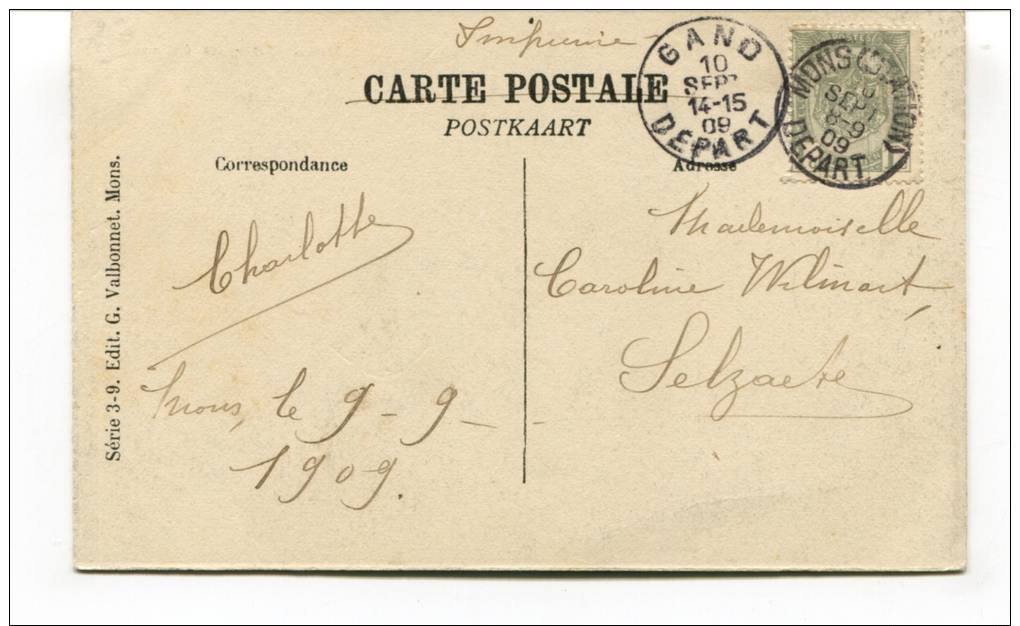 Imprimé
CARTE POSTALE
POSTKAART
GAND
10
SEPT
14-15
09
DEPART
MONS (STATION)
SEPT
8-9
09
DEPART
1
Correspondance
Adresse
Charlotte
Mons, le 9-9-
1909.
Mademoiselle
Caroline Wilmart,
Selzaete
Série 3-9. Edit. G. Valbonnet. Mons.